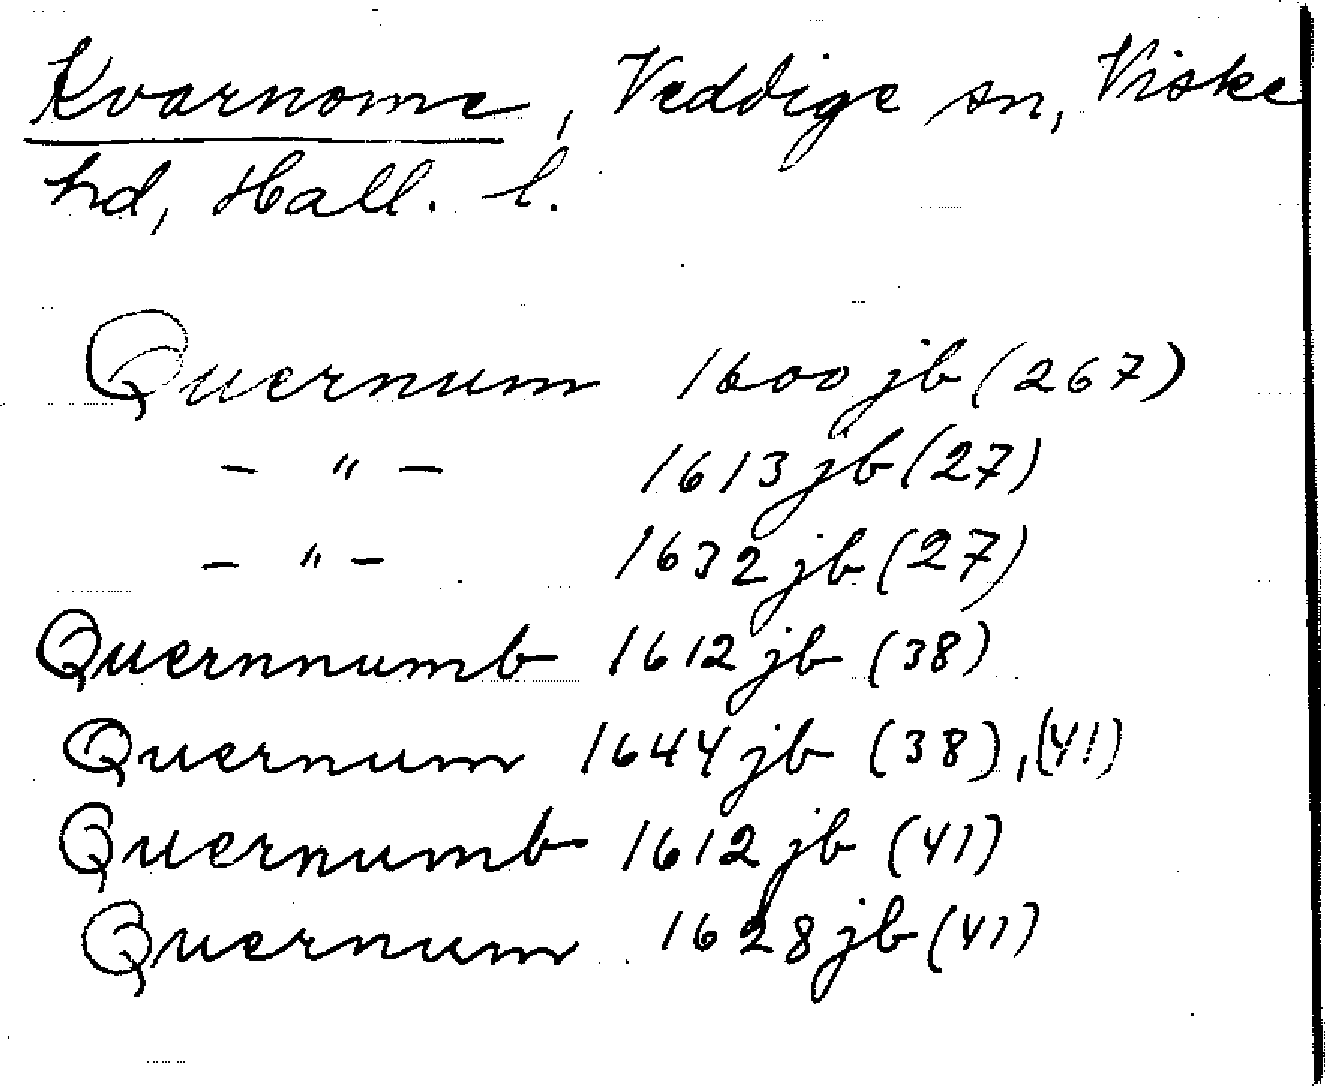 Kvarnome, Veddige sn, Viske
hd, Hall. l.
Quernum 1600 jb (267)
— " — 1613 jb (27)
— " — 1632 jb (27)
Quernnumb 1612 jb (38)
Quernum 1644 jb (38), (41)
Quernumb 1612 jb (41)
Quernum 1628 jb (41)